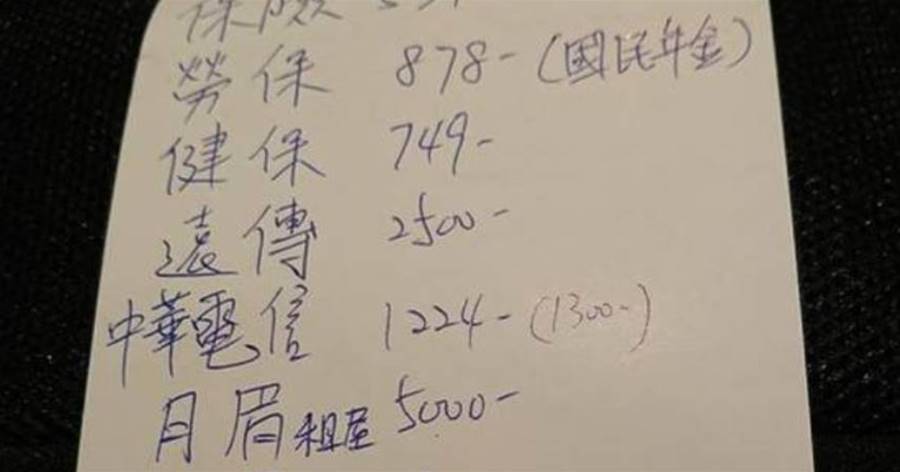 保險
勞保 878-(國民年金)
健保 749-
遠傳 2500-
中華電信 1224-(1300-)
月眉租屋 5000-